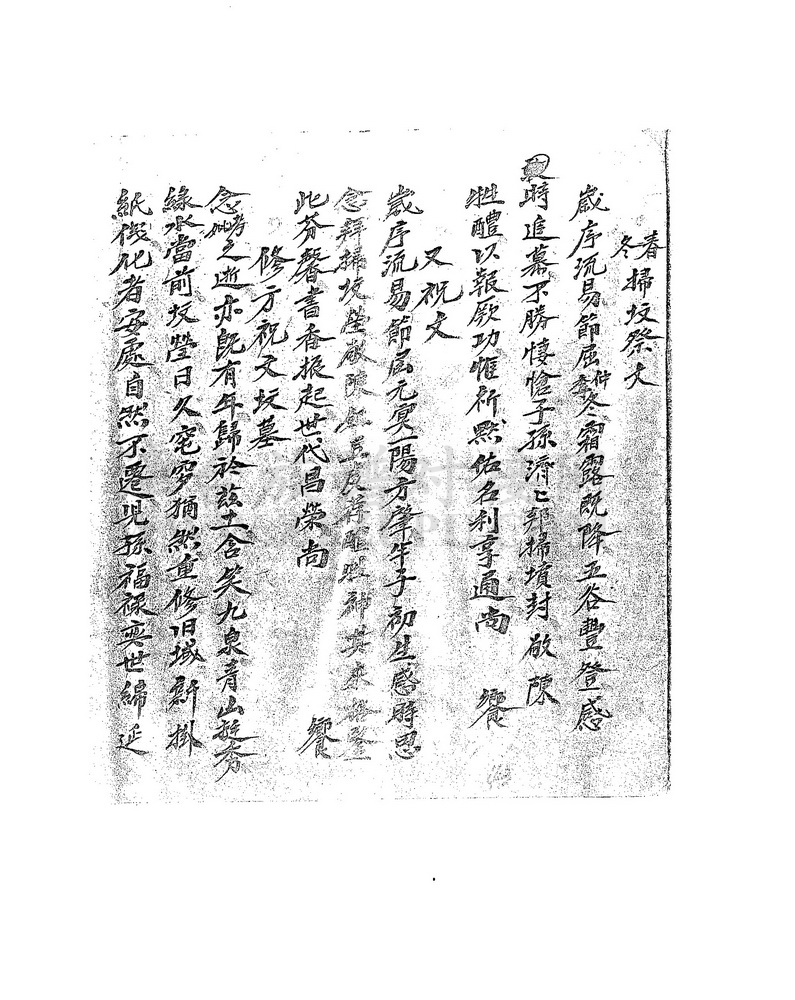 春冬掃坟祭文
歲序流易節屆仲季冬霜露既降五谷豐登感
時追慕不勝悽愴子孫濟匕郭掃墳封敬陳
牲醴以報厥功惟祈默佑名利享通尚 饗
又祝文
歲序流易節屆元冥一陽方肇牛子初生感時思
念拜掃坟塋敬陳 神其來格登
此芬馨書香振起世代昌榮尚 饗
修方祝文坟墓
念考妣之逝亦既有年歸於該土含笑九泉青山
綠水當前坟塋日久窀穸猶然重修旧域新掛
紙儀化者安處自然不遷兒孫福祿奕世綿延